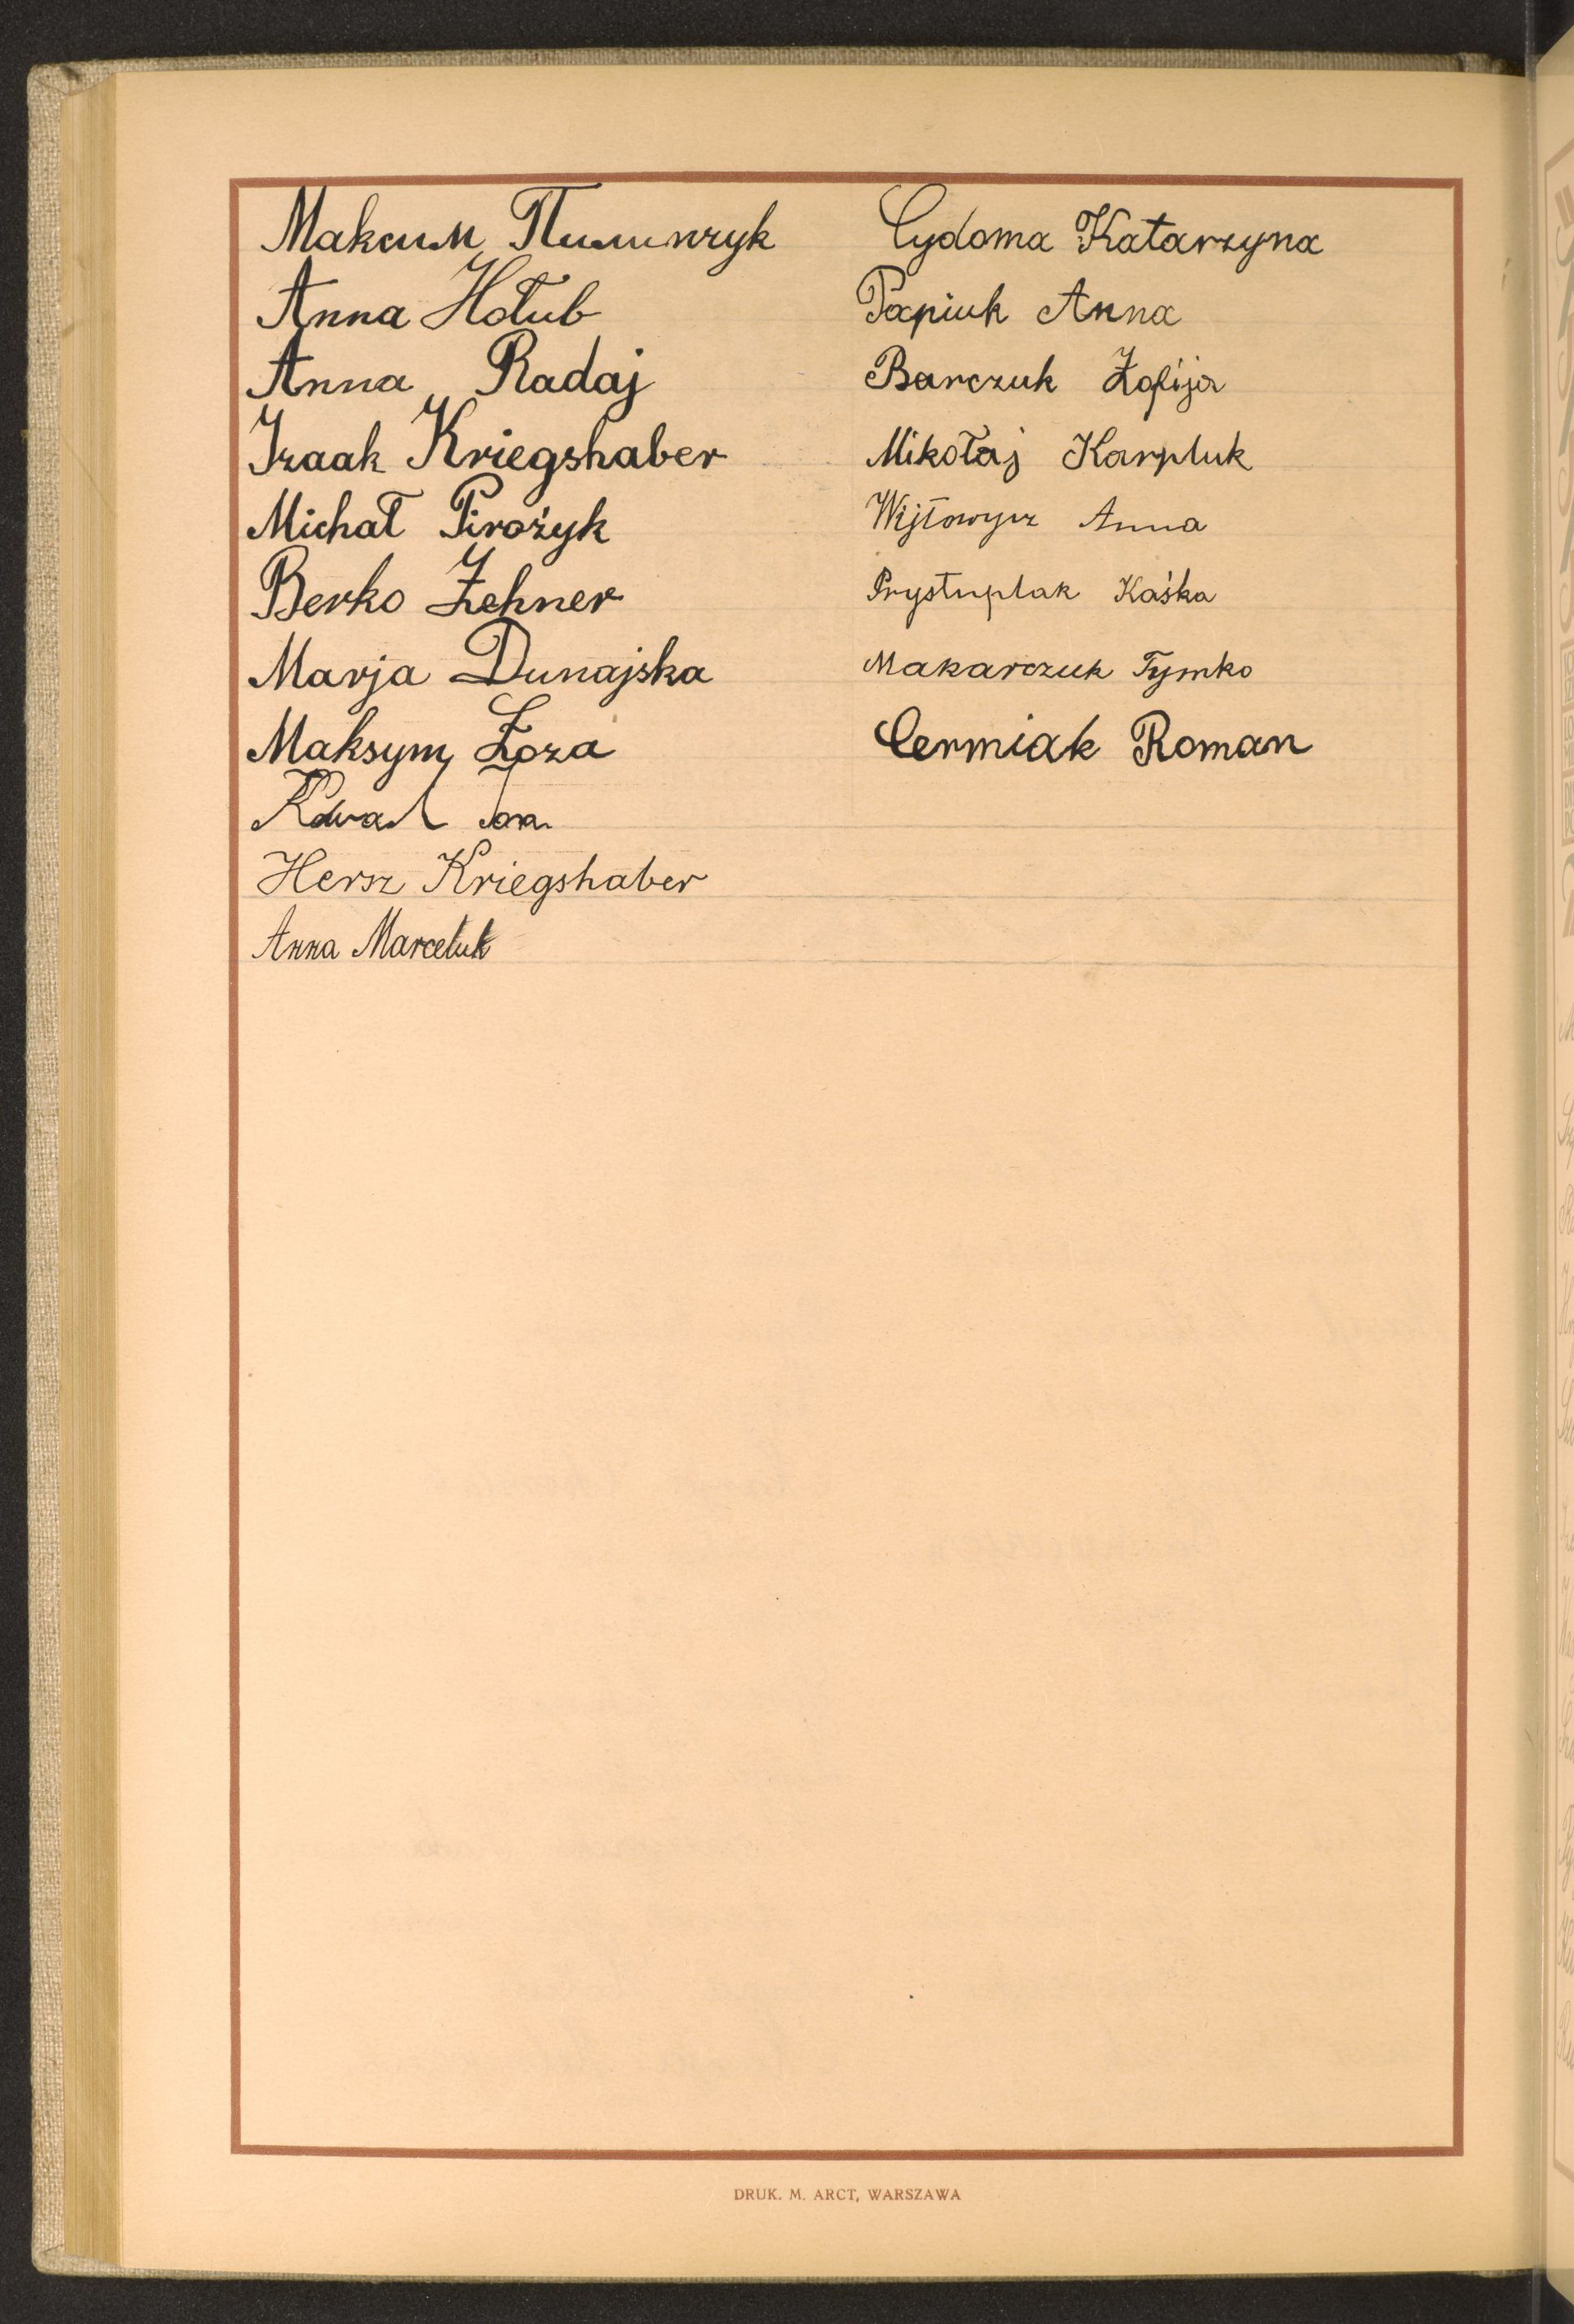 Максим
Anna Hołub
Anna Radaj
Izaak Kriegshaber
Michał Pirożyk
Berko Zehner
Marja Dunajska
Maksym Łoza
Hersz Kriegshaber
Anna Marceluk
Cydoma Katarzyna
Papiuk Anna
Barczuk Zofija
Mikołaj Karpluk
Wijtowycz Anna
Prystuplak Kaśka
Makarczuk Tymko
Cermiak Roman
DRUK. M. ARCT, WARSZAWA